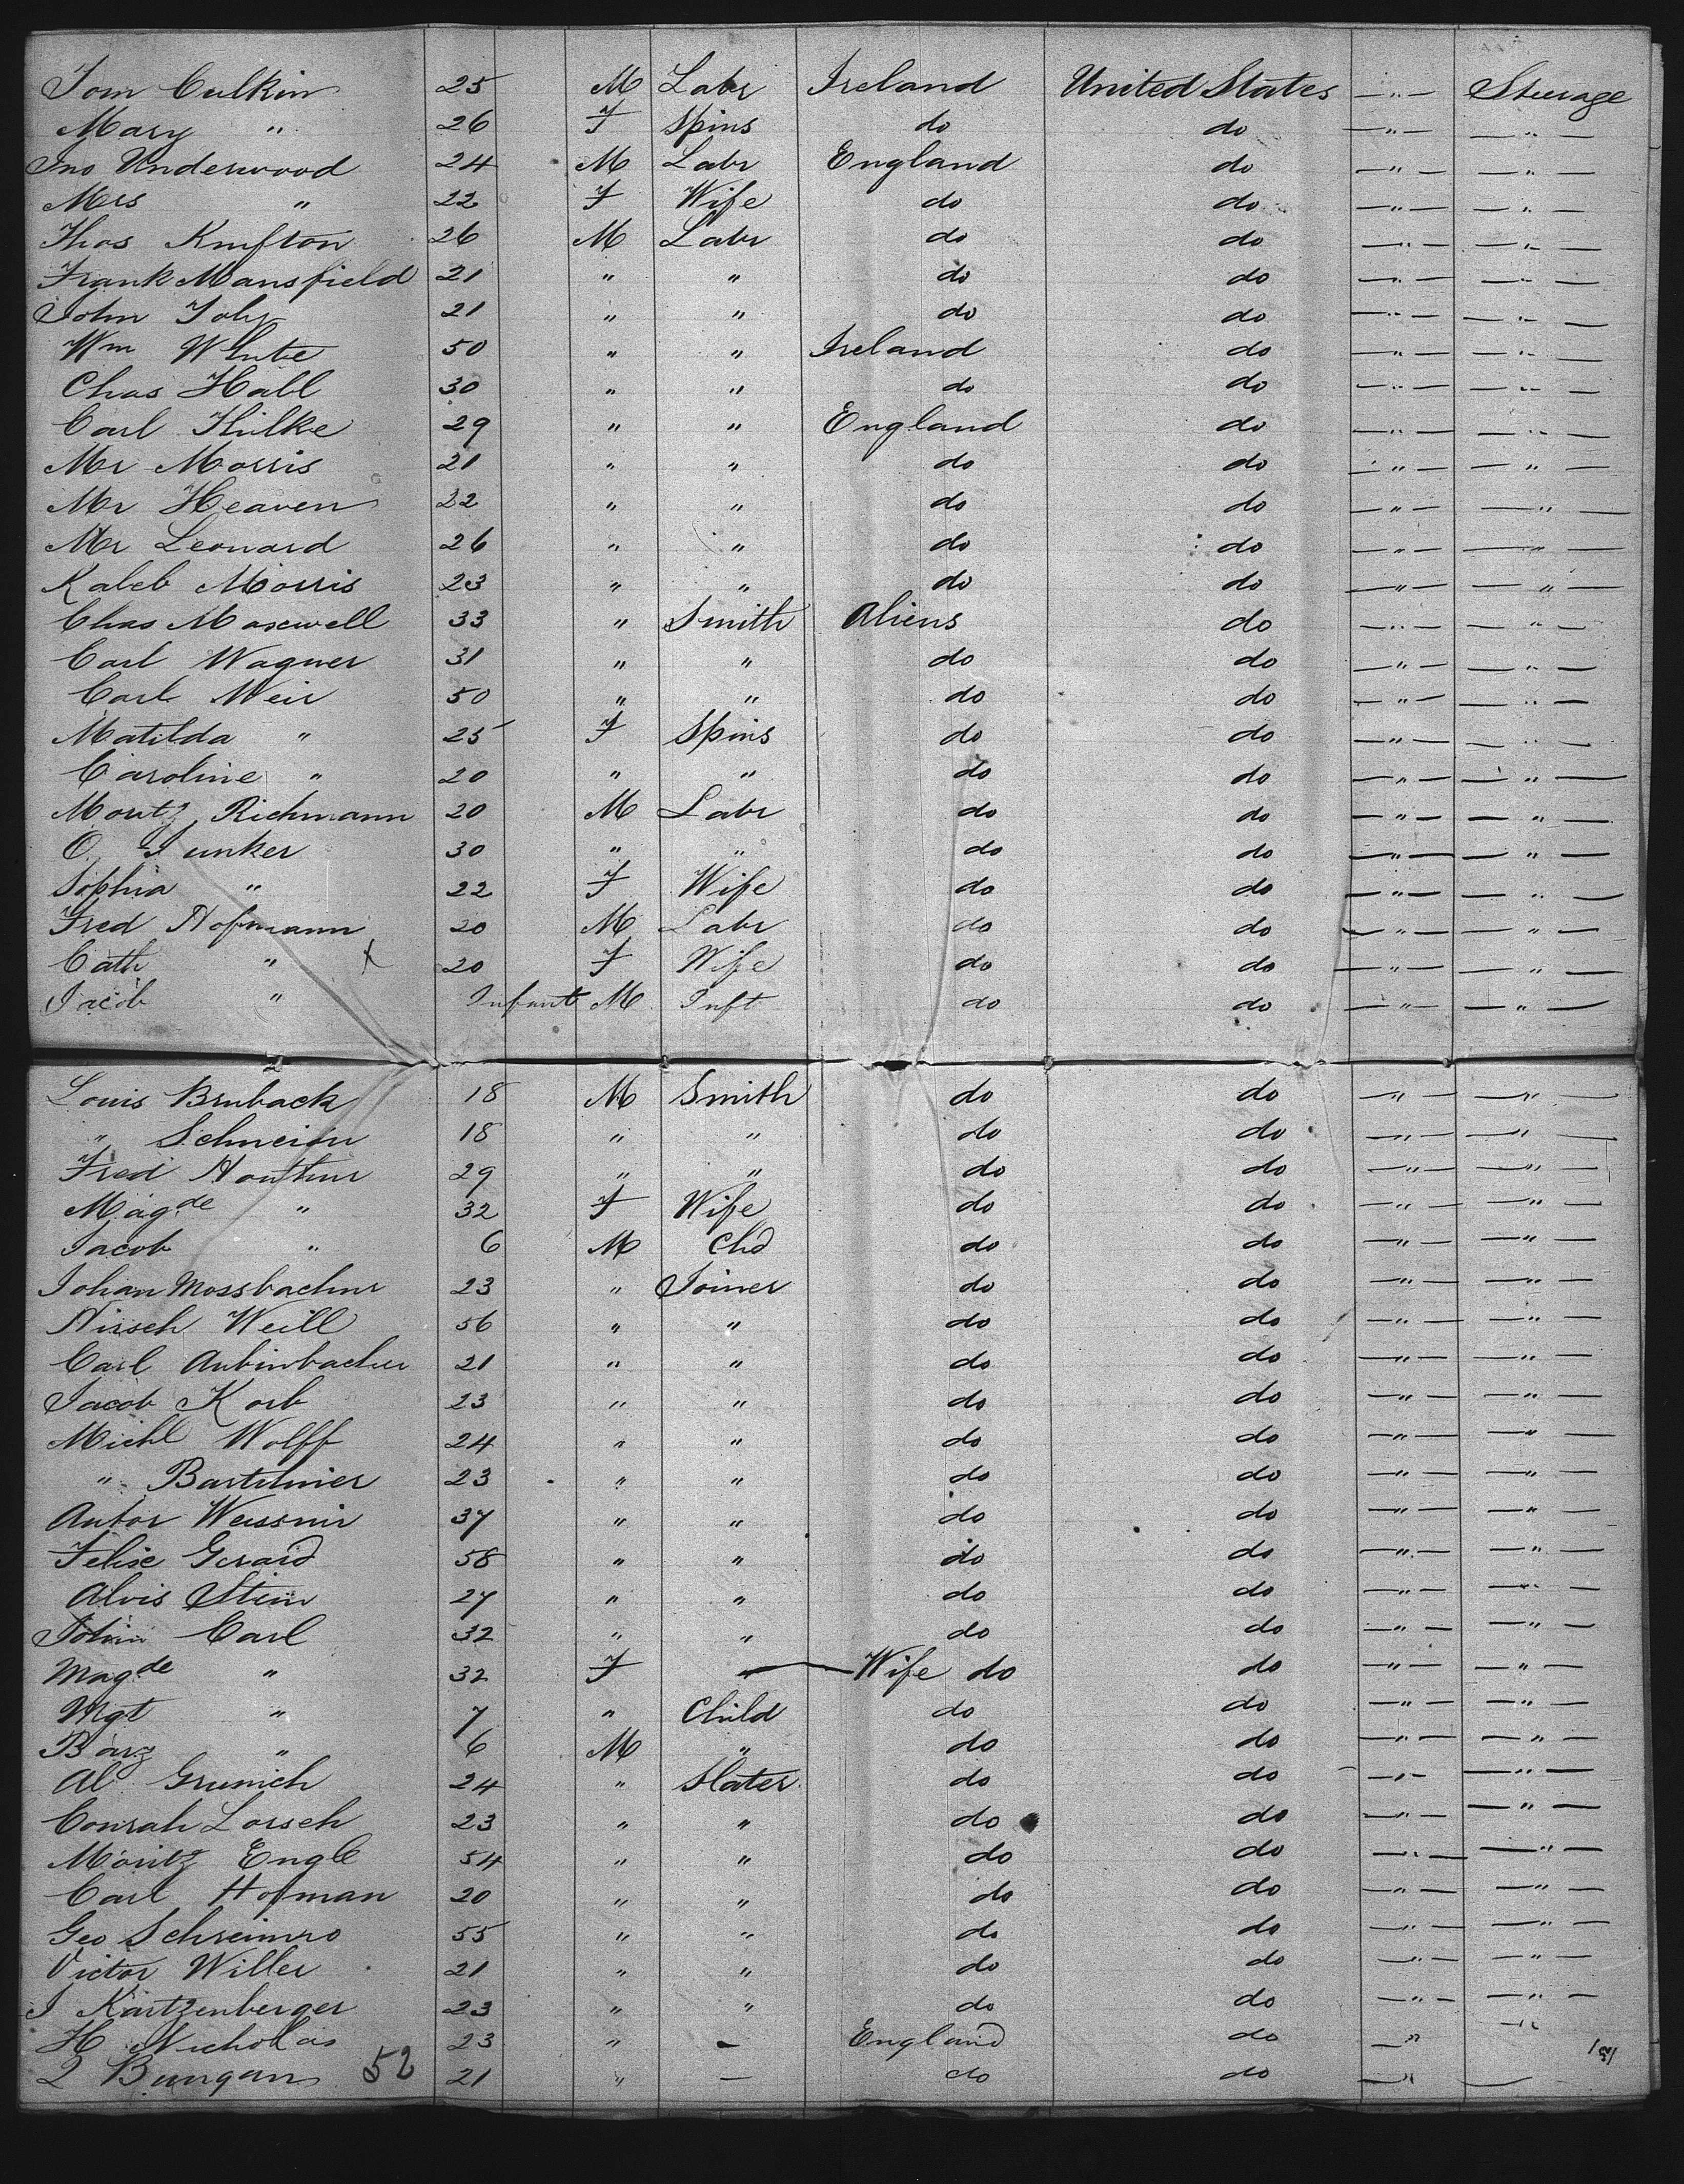 Tom Culkin 25 M Labr Ireland United States —"— Steerage
Mary " 26 F Spins do do —"— —"—
Jno Underwood 24 M Labr England do —"— —"—
Mrs " 22 F Wife do do —"— —"—
Thos Knifton 26 M Labr do do —"— —"—
Frank Mansfield 21 " " do do —"— —"—
John 21 " " do do —"— —"—
Wm White 50 " " Ireland do —"— —"—
Chas Hall 30 " " do do —"— —"—
Carl Hilke 29 " " England do —"— —"—
Mr Morris 21 " " do do —"— —"—
Mr Heaven 22 " " do do —"— —"—
Mr Leonard 26 " " do do —"— —"—
Kaleb Morris 23 " " do do —"— —"—
Chas Maxwell 33 " Smith Aliens do —"— —"—
Carl Wagner 31 " " do do —"— —"—
Carl Weir 50 " " do do —"— —"—
Matilda " 25 F Spins do do —"— —"—
Caroline " 20 " " do do —"— —"—
Moritz Richmann 20 M Labr do do —"— —"—
O Junker 30 " " do do —"— —"—
Sophia " 22 F Wife do do —"— —"—
Fred Hofmann 20 M Labr do do —"— —"—
Cath " x 20 F Wife do do —"— —"—
Jacob " Infant M Inft do do —"— —"—
Louis Bruback 18 M Smith do do —"— —"—
" 18 " " do do —"— —"—
Fred 29 " " do do —"— —"—
Magde " 32 F Wife do do —"— —"—
Jacob " 6 M Chd do do —"— —"—
Johan Mossbacher 23 " Joiner do do —"— —"—
Hirsch Weill 56 " " do do —"— —"—
Carl 21 " " do do —"— —"—
Jacob Korb 23 " " do do —"— —"—
Michl Wolff 24 " " do do —"— —"—
" 23 " " do do —"— —"—
37 " " do do —"— —"—
Felise Gerard 58 " " do do —"— —"—
Alois Stein 27 " " do do —"— —"—
John Carl 32 " " do do —"— —"—
Magde " 32 F " — Wife do do —"— —"—
Mgt " 7 " Child do do —"— —"—
" 6 M " do do —"— —"—
Al 24 " Slater do do —"— —"—
Conrah Lorsch 23 " " do do —"— —"—
Moritz Engle 54 " " do do —"— —"—
Carl Hofman 20 " " do do —"— —"—
Geo 55 " " do do —"— —"—
Victor Willer 21 " " do do —"— —"—
J Kartzenberger 23 " " do do —"— —"—
H Nicholas 23 " — England do —" —"
Bungan 52 21 " — do do —" —